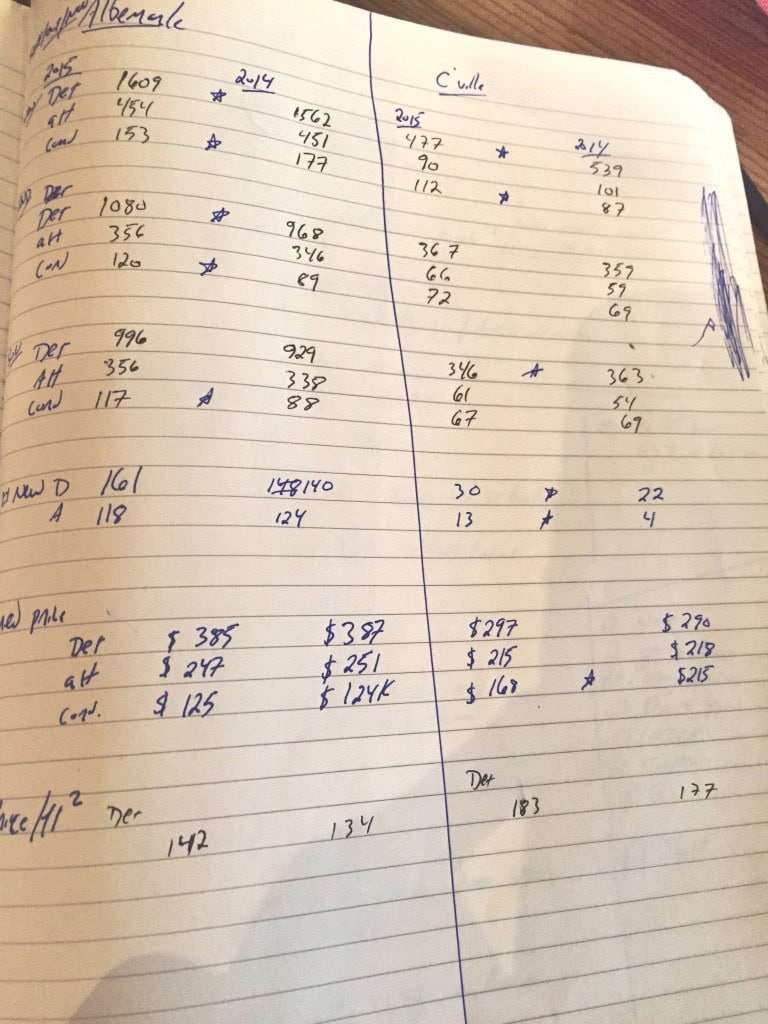 Albemarle C'ville
2015 2014 2015 2014
Det 1609 1562 477 539
att 454 451 90 101
Cond 153 177 112 87
Det
Det 1080 968 367 359
att 356 346 66 59
Con 120 89 72 69
Det 996 929 346 363
Att 356 338 61 54
Cond 117 88 67 69
New D 161 140 30 22
A 118 124 13 4
price
Det $385 $387 $297 $290
att $247 $251 $215 $218
Cond. $125 $124K $168 $215
Det 142 134 Det 183 177